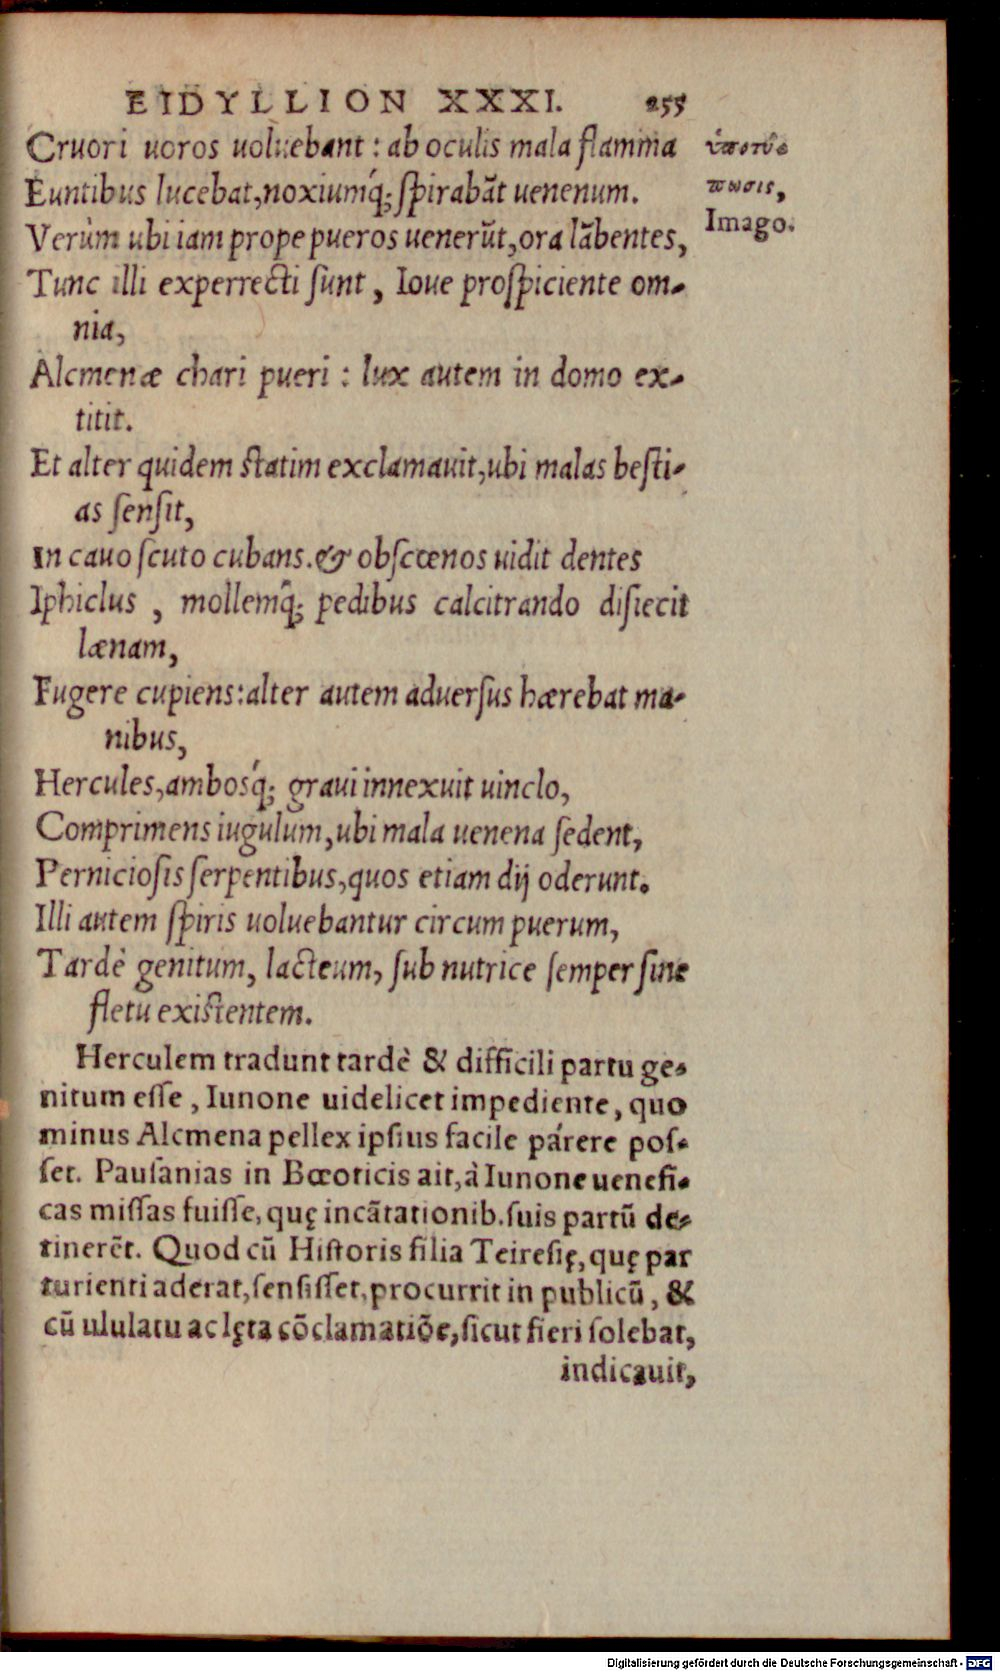 EIDYLLION XXXI. 255
Cruori uoros uoluebant : ab oculis mala flamma
Euntibus lucebat, noxiumq́; spirabāt uenenum.
Verùm ubi iam prope pueros uenerūt, ora lābentes,
Tunc illi experrecti sunt, Ioue prospiciente om-
nia,
Alcmenæ chari pueri : lux autem in domo ex-
titit.
Et alter quidem statim exclamauit, ubi malas besti-
as sensit,
In cauo scuto cubans. & obscœnos uidit dentes
Iphiclus, mollemq̃; pedibus calcitrando disiecit
lænam,
Fugere cupiens: alter autem aduersus hærebat ma-
nibus,
Hercules, ambosq́; graui innexuit uinclo,
Comprimens iugulum, ubi mala uenena sedent,
Perniciosis serpentibus, quos etiam dij oderunt.
Illi autem spiris uoluebantur circum puerum,
Tardè genitum, lacteum, sub nutrice semper sine
fletu existentem.
Herculem tradunt tardè & difficili partu ge-
nitum esse, Iunone uidelicet impediente, quo
minus Alcmena pellex ipsius facile párere pos-
set. Pausanias in Bœoticis ait, à Iunone uenefi-
cas missas fuisse, quę incātationib. suis partū de-
tinerēt. Quod cū Historis filia Teiresię, quę par
turienti aderat, sensisset, procurrit in publicū, &
cū ululatu ac lęta cōclamatiōe, sicut fieri solebat,
indicauit,
ὑποτύ-
πωσις,
Imago.
Digitalisierung gefördert durch die Deutsche Forschungsgemeinschaft - DFG